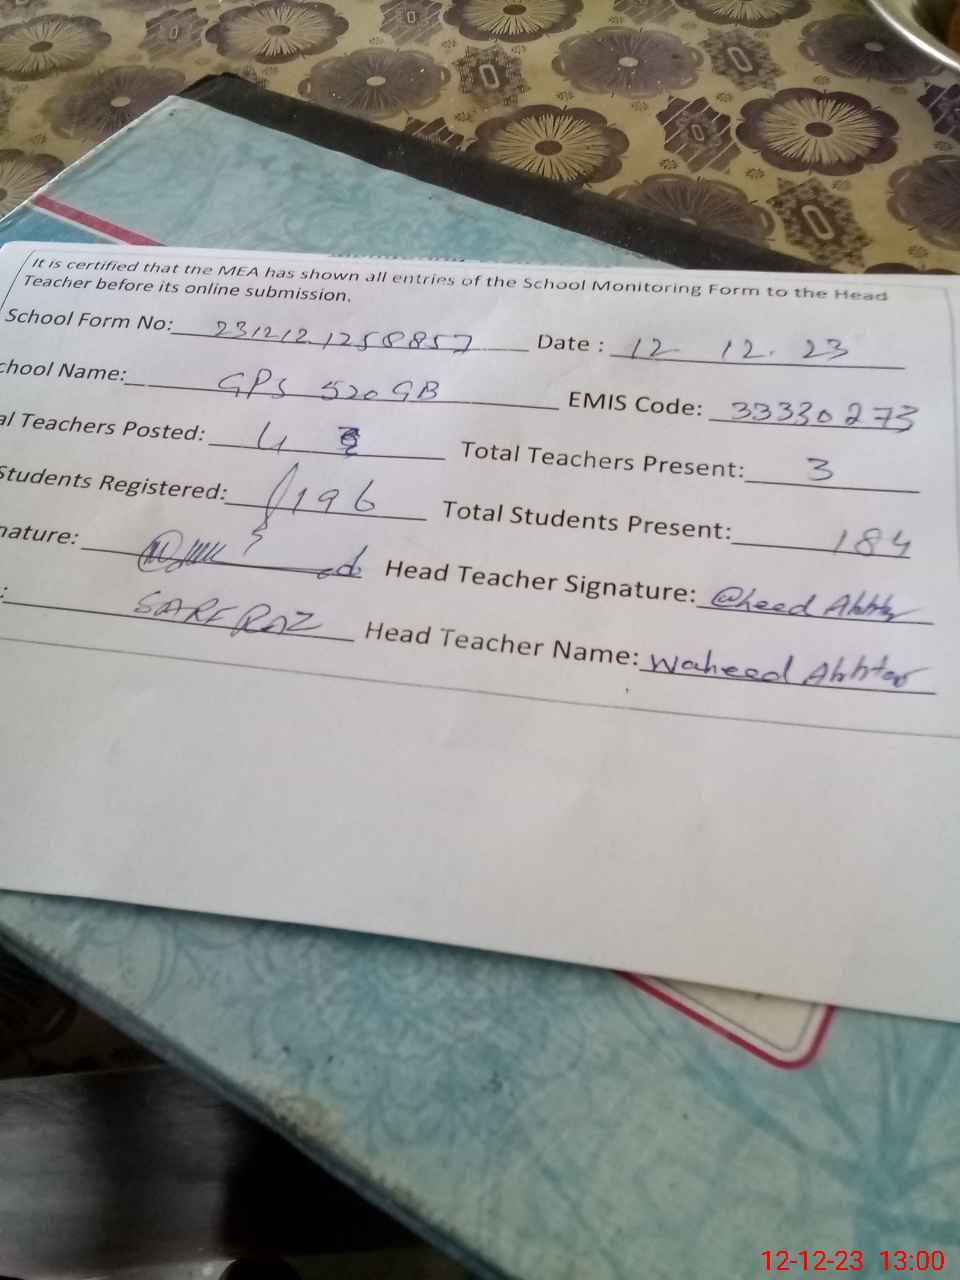 It is certified that the MEA has shown all entries of the School Monitoring Form to the Head
Teacher before its online submission.
School Form No: 2312121258857 Date : 12. 12. 23
chool Name: GPS 520 GB EMIS Code: 33330273
al Teachers Posted: 4 Total Teachers Present: 3
Students Registered: 196 Total Students Present: 184
nature: Head Teacher Signature: Waheed Akhtar
: SARFRAZ Head Teacher Name: Waheed Akhtar
12-12-23 13:00